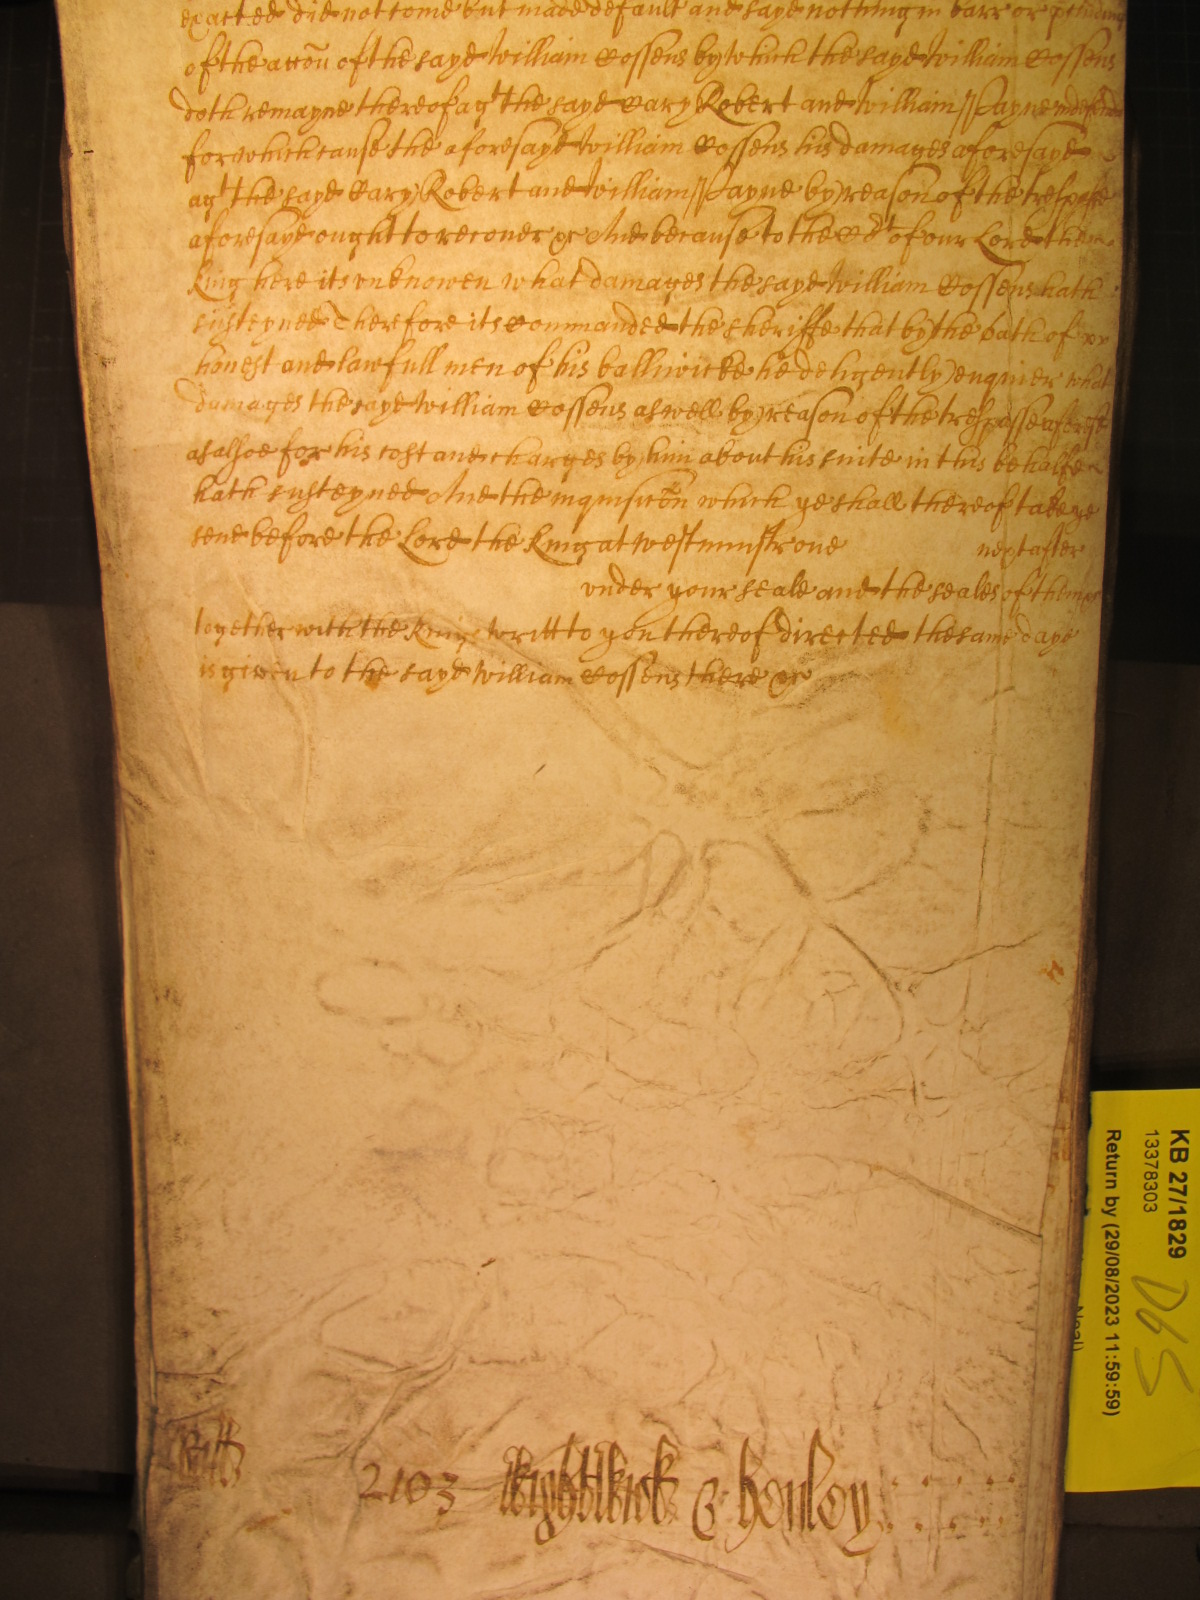 exacted did not come but made default and sayd nothing in barr or
of the accon of the sayd William Cossens by which the sayd William Cossens
doth remayne thereof agt the sayd Mary Robert and William Payne
for which cause the aforesayd William Cossens his damages aforesayd
agt the sayd Mary Robert and William Payne by reason of the trespasse
aforesayd ought to recover &c And because to the Cort of our Lord the
King here its unknowen what damages the sayd William Cossens hath
susteyned Therefore its Commanded the sheriffe that by the oath of xii
honest and lawfull men of his balliwicke he deligently enquier what
damages the sayd William Cossens aswell by reason of the trespasse
as alsoe for his cost and charges by him about his suite in this behalfe
hath susteyned And the inquisicon which ye shall thereof take ye
send before the Lord the King at Westminstr one next after
under your seale and the seales of them
together with the Kings writt to you thereof directed the same daye
is given to the sayd William Cossens there &c
2103 & Henley
KB 27/1829
13378303
Return by (29/08/2023 11:59:59)
Neal)
D6 5